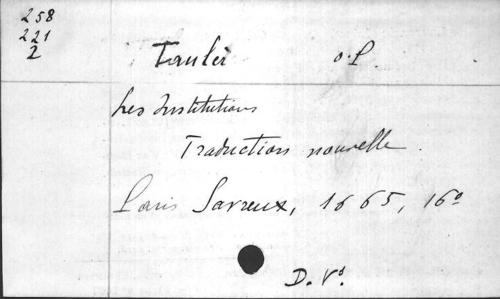 258
221
2
Tauler o.P.
Les Institutions
Traduction nouvelle.
Paris Savreux, 1665, 16º
D. Vs.